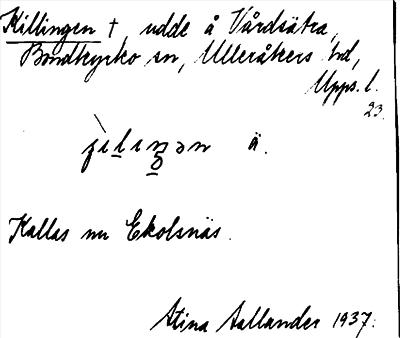 Killingen †, udde å Vårdsätra,
Bondkyrko sn, Ulleråkers hd,
Upps. l.
23.
ä.
Kallas nu Ekolsnäs.
Stina Aallander 1937.